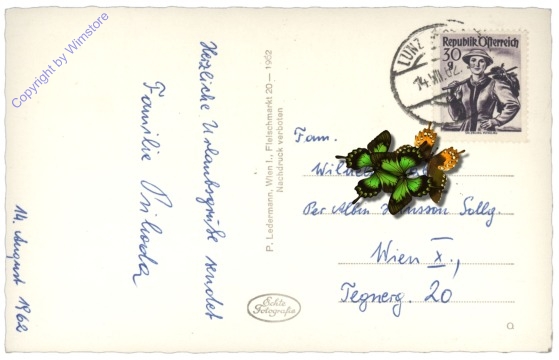 Copyright by Wimstore
Herzliche Urlaubsgrüße sendet
Familie Prihoda
14. August 1962
P. Ledermann, Wien I., Fleischmarkt 20 — 1962
Nachdruck verboten
Echte
Fotografie
LUNZ
14.VIII.62
Republik Österreich
30 g
Fam.
Per Albin Hansson Sdlg.
Wien X.,
Tegnerg. 20
Q